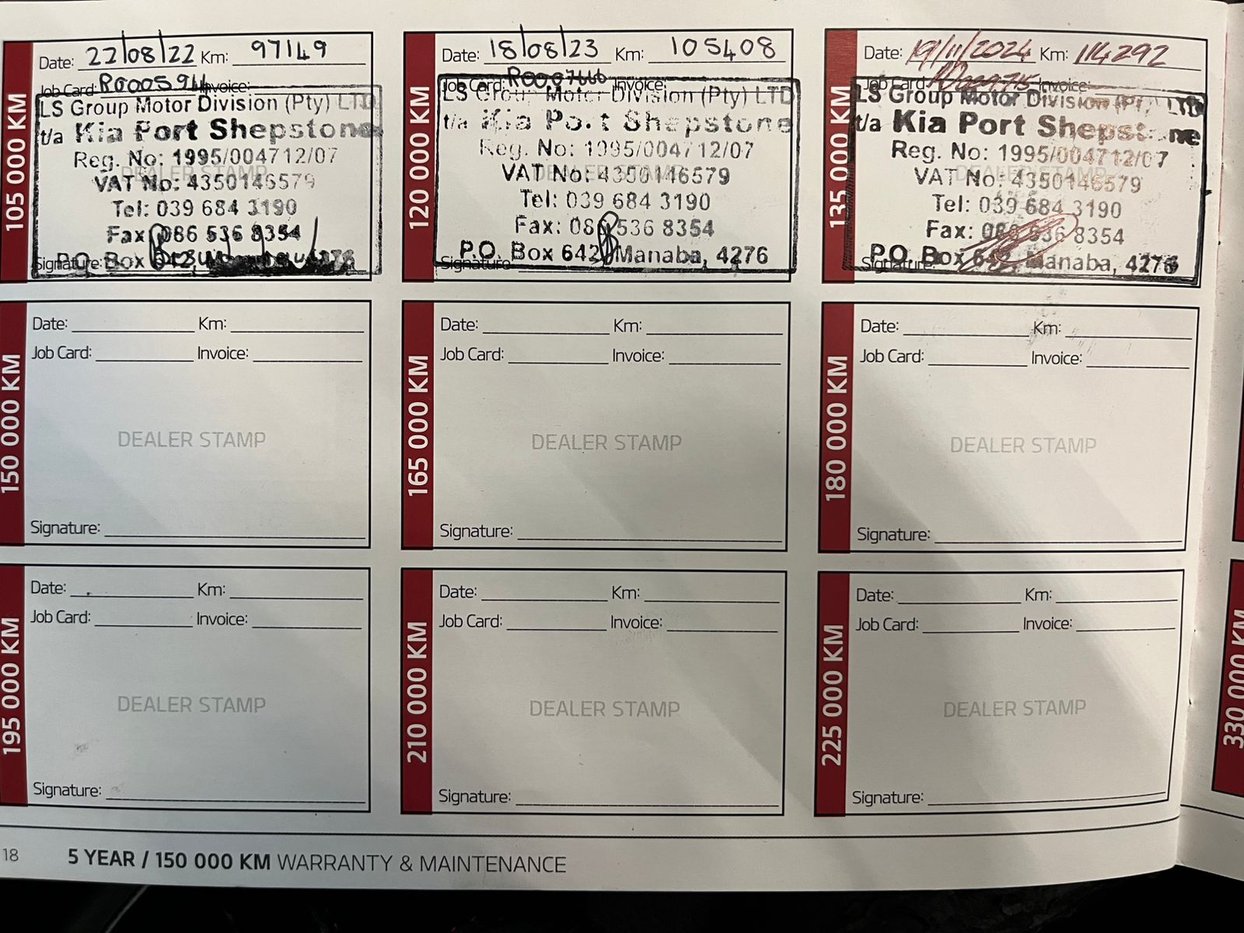 105 000 KM
Date: 22/08/22 Km: 97149
Job Card: R0005944 Invoice:
LS Group Motor Division (Pty) LTD
t/a Kia Port Shepstone
Reg. No: 1995/004712/07
DEALER STAMP
VAT No: 4350146579
Tel: 039 684 3190
Fax: 086 536 8354
P.O. Box 642, 4276
Signature:
120 000 KM
Date: 18/08/23 Km: 105408
Job Card: R0007666 Invoice:
LS Group Motor Division (Pty) LTD
t/a Kia Port Shepstone
Reg. No: 1995/004712/07
DEALER STAMP
VAT No: 4350146579
Tel: 039 684 3190
Fax: 086 536 8354
P.O. Box 642, Manaba, 4276
Signature:
135 000 KM
Date: 19/11/2024 Km: 114292
Job Card: Invoice:
LS Group Motor Division (Pty) LTD
t/a Kia Port Shepstone
Reg. No: 1995/004712/07
DEALER STAMP
VAT No: 4350146579
Tel: 039 684 3190
Fax: 086 536 8354
P.O. Box 642, Manaba, 4276
Signature:
150 000 KM
Date: Km:
Job Card: Invoice:
DEALER STAMP
Signature:
165 000 KM
Date: Km:
Job Card: Invoice:
DEALER STAMP
Signature:
180 000 KM
Date: Km:
Job Card: Invoice:
DEALER STAMP
Signature:
195 000 KM
Date: Km:
Job Card: Invoice:
DEALER STAMP
Signature:
210 000 KM
Date: Km:
Job Card: Invoice:
DEALER STAMP
Signature:
225 000 KM
Date: Km:
Job Card: Invoice:
DEALER STAMP
Signature:
330 000 KM
18 5 YEAR / 150 000 KM WARRANTY & MAINTENANCE